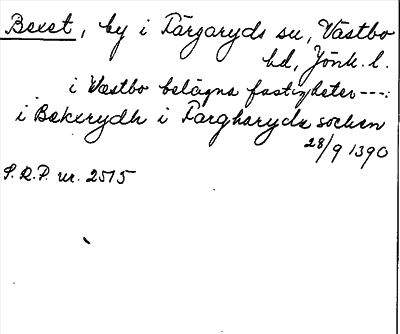 Bexet, by i Färgaryds sn, Västbo
hd, Jönk. l.
i Wæstbo belägna fastigheter ---:
i Bekerydh i Fargharydæ sochen
28/9 1390
S.R.P. nr. 2515